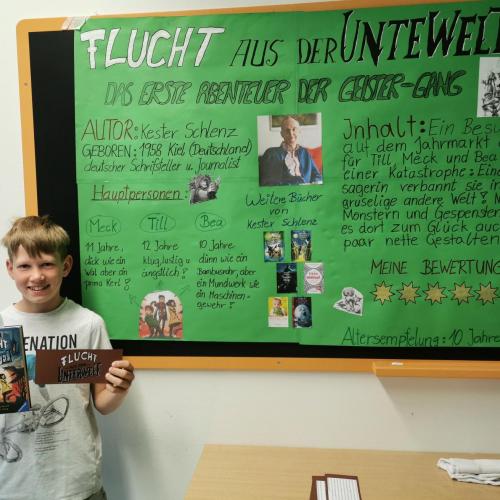 FLUCHT AUS DER UNTEWELT
DAS ERSTE ABENTEUER DER GEISTER-GANG
AUTOR: Kester Schlenz
GEBOREN: 1958 Kiel (Deutschland)
deutscher Schriftsteller u. Journalist
Hauptpersonen:
Meck
11 Jahre,
dick wie ein
Wal aber ein
prima Kerl!
Till
12 Jahre
klug, lustig u
ängstlich!
Bea
10 Jahre
dünn wie ein
Bambusrohr, aber
ein Mundwerk wie
ein Maschinen-
gewehr!
Weitere Bücher
von
Kester Schlenz
Inhalt: Ein Besu
auf dem Jahrmarkt
für Till, Meck und Bea
einer Katastrophe: Eine
sagerin verbannt sie
gruselige andere Welt!
Monstern und Gespenster
es dort zum Glück auc
paar nette Gestalten
MEINE BEWERTUNG
Altersempfelung: 10 Jahre
FLUCHT
UNTERWELT
ENATION